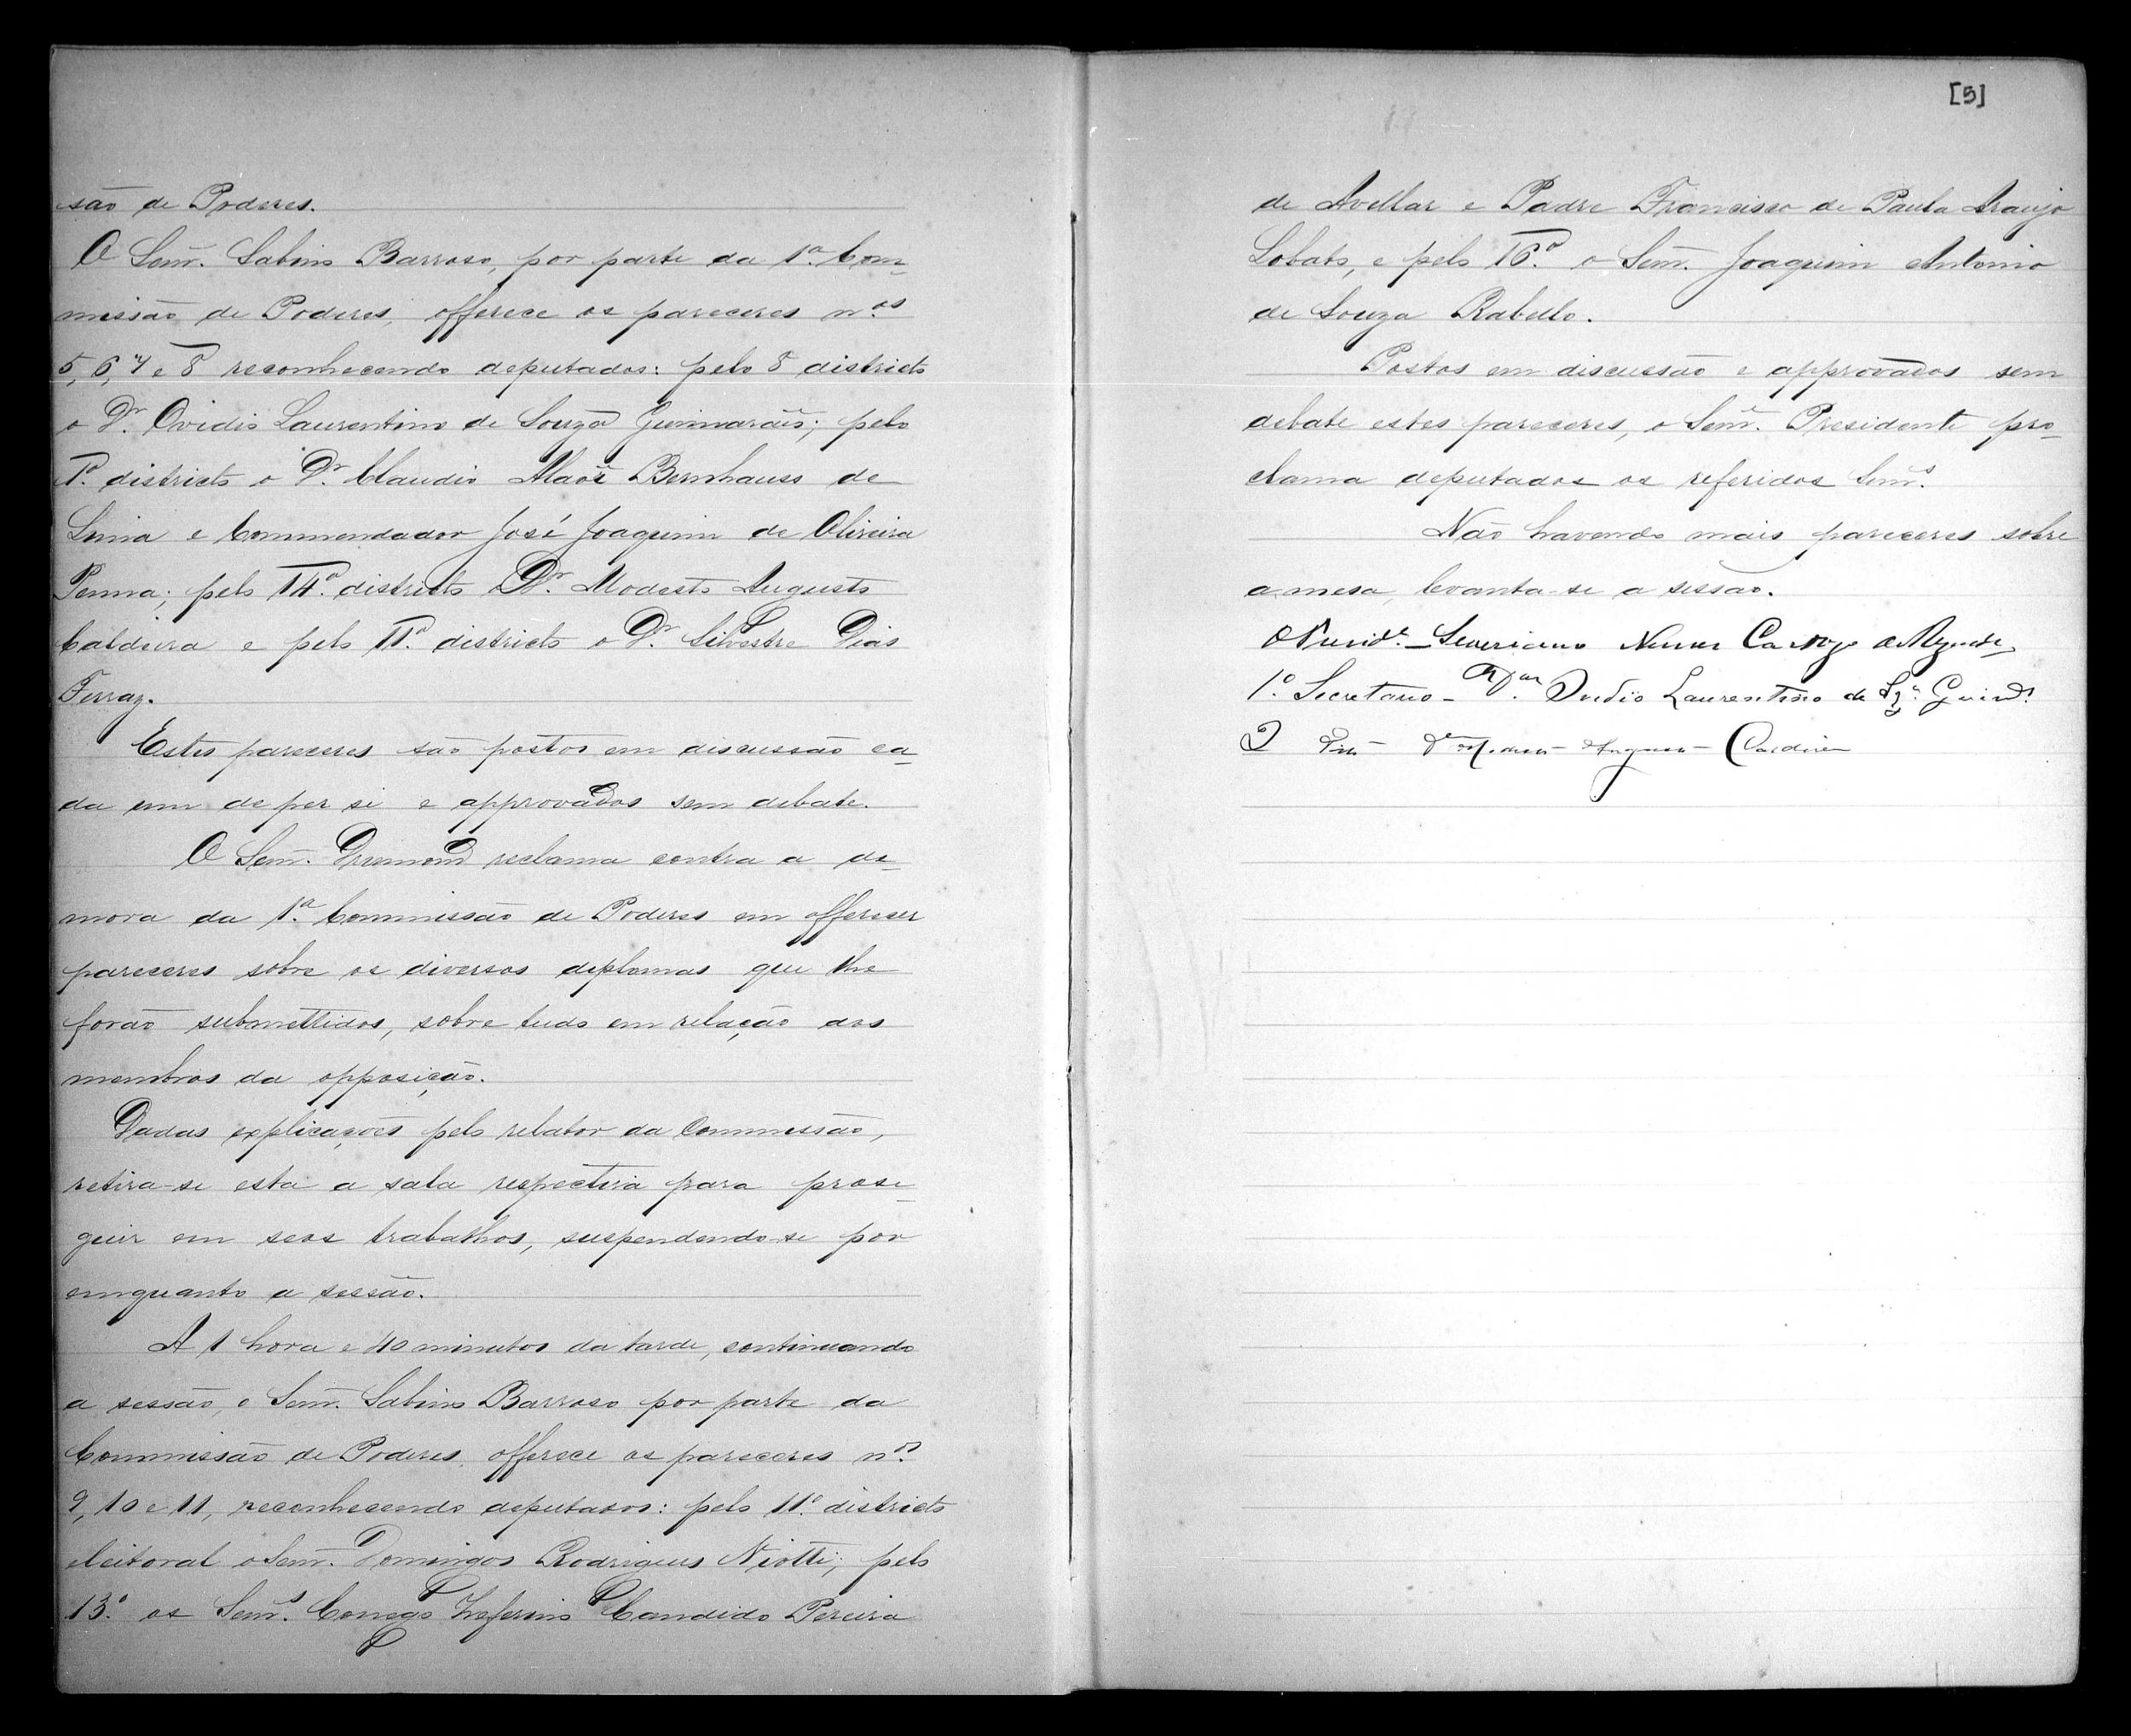 são de Poderes.
O Senr. Sabino Barroso, por parte da 1ª. Com-
missão de Poderes, offerece os pareceres n.os
5, 6, 7 e 8 reconhecendo deputados: pelo 8 districto
o Dr. Ovidio Laurentino de Souza Guimarães; pelo
1º. districto o Dr. Claudio Alaor Bernhauss de
Lima e Commendador José Joaquim de Oliveira
Penna; pelo 14º. districto Dr. Modesto Augusto
Caldeira e pelo 11º. districto o Dr. Silvestre Dias
Ferraz.
Estes pareceres são postos em discussão ca-
da um de per si e approvados sem debate.
O Senr. Drumond reclama contra a de-
mora da 1ª. Commissão de Poderes em offerecer
pareceres sobre os diversos diplomas que lhe
forão submettidos, sobre tudo em relação aos
membros da opposição.
Dadas explicações pelo relator da Commissão,
retira-se esta a sala respectiva para prose-
guir em seos trabalhos, suspendendo-se por
emquanto a sessão.
A 1 hora e 40 minutos da tarde, continuando
a sessão, o Senr. Sabino Barroso por parte da
Commissão de Poderes, offerece os pareceres n.os
9, 10 e 11, reconhecendo deputados: pelo 11º. districto
eleitoral o Senr. Domingos Rodrigues Viotti; pelo
13º. os Senrs. Conego Zeferino Candido Pereira
[5]
de Avellar e Padre Francisco de Paula Araujo
Lobato, e pelo 16º. o Senr. Joaquim Antonio
de Souza Rabello.
Postos em discussão e approvados sem
debate estes pareceres, o Senr. Presidente pro-
clama deputados os referidos Senrs.
Não havendo mais pareceres sobre
a mesa, levanta-se a sessão.
O Presid.e – Severiano Nunes Cardozo de Rezende
1º. Secretario – Ovidio Laurentino de Sz.ª Guim.s
2 Caldeira